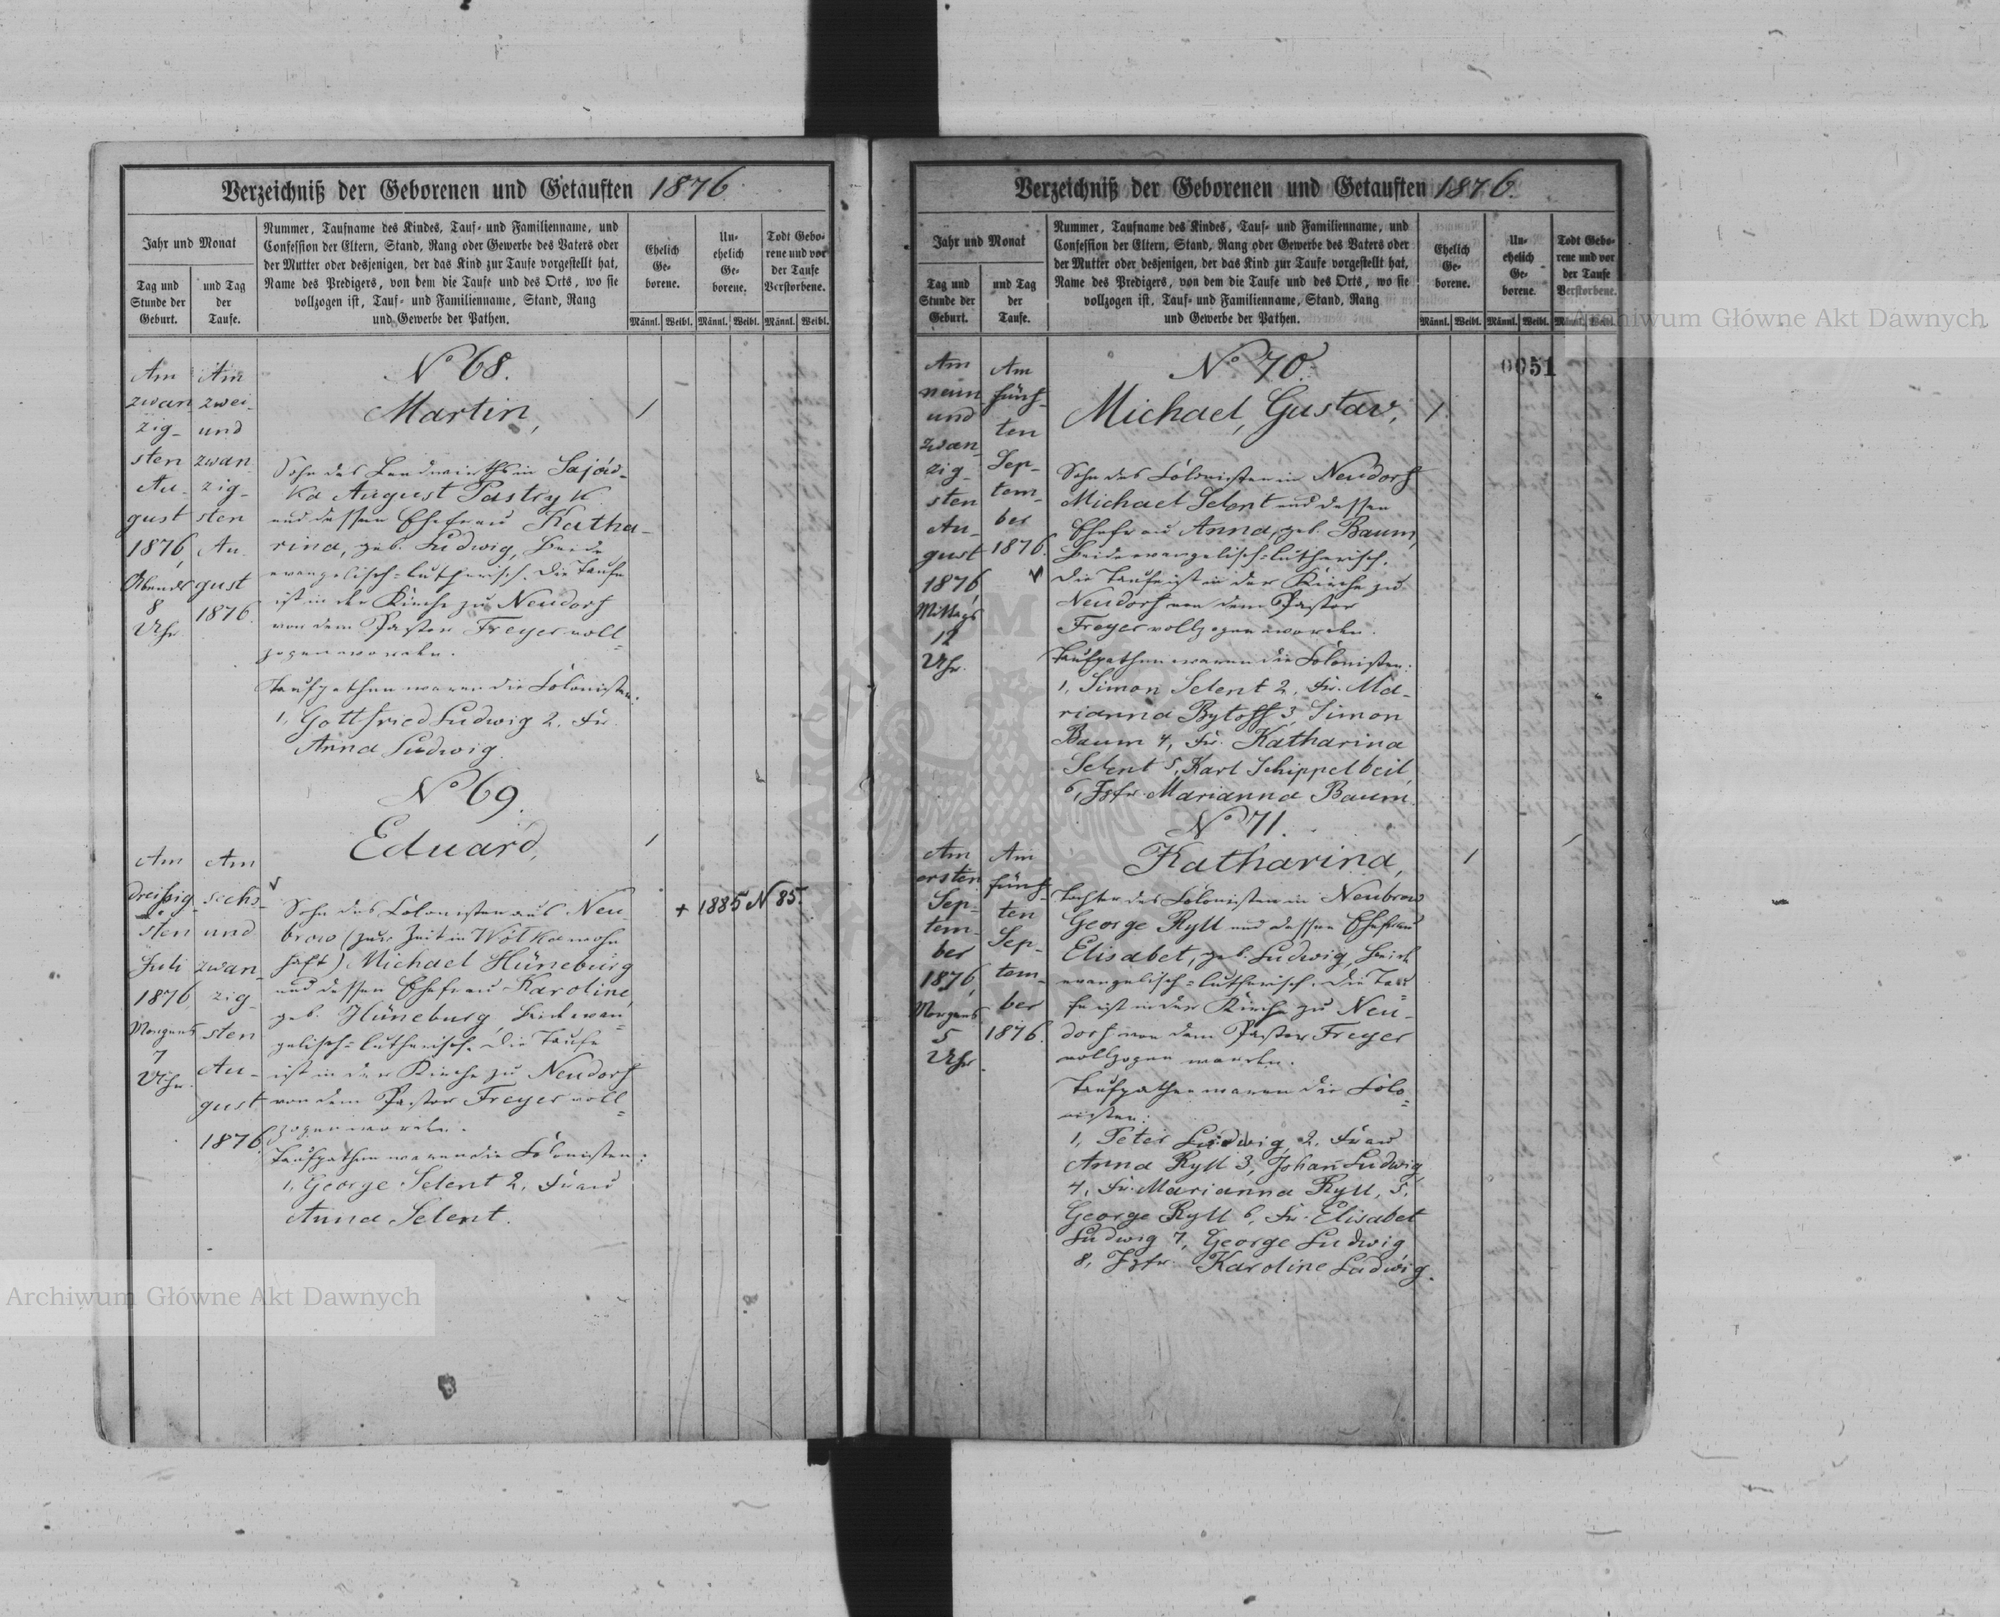 Verzeichniß der Geborenen und Getauften 1876.
Jahr und Monat
Tag und
Stunde der
Geburt.
und Tag
der
Taufe.
Nummer, Taufname des Kindes, Tauf- und Familienname, und
Confession der Eltern, Stand, Rang oder Gewerbe des Vaters oder
der Mutter oder desjenigen, der das Kind zur Taufe vorgestellt hat,
Name des Predigers, von dem die Taufe und des Orts, wo sie
vollzogen ist, Tauf- und Familienname, Stand, Rang
und Gewerbe der Pathen.
Ehelich
Ge-
borene.
Un-
ehelich
Ge-
borene.
Todt Gebo-
rene und vor
der Taufe
Verstorbene.
Männl. Weibl. Männl. Weibl. Männl. Weibl.
Am
zwan
zig-
sten
Au-
gust
1876,
Abends
8
Uhr.
Am
zwei-
und
zwan
zig-
sten
Au-
gust
1876.
No 68.
Martin,
1
Sohn des Landwirths in Sajów-
ka August Pastryk
und dessen Ehefrau Katha-
rina, geb. Ludwig, beide
evangelisch=lutherisch. Die Taufe
ist in der Kirche zu Neudorf
von dem Pastor Freyer voll=
zogen worden.
Taufpathen waren die Colonisten:
1, Gottfried Ludwig 2, Fr.
Anna Ludwig.
Am
dreißig-
sten
Juli
1876,
Morgens
7
Uhr.
Am
sechs-
und
zwan-
zig-
sten
Au-
gust
1876.
No 69.
Eduard,
1
+ 1885 N 85.
Sohn des Colonisten aus Neu-
brow (zur Zeit in Wolka wohn
haft) Michael Hüneburg
und dessen Ehefrau Karoline,
geb. Hüneburg, beide evan=
gelisch=lutherisch. Die Taufe
ist in der Kirche zu Neudorf
von dem Pastor Freyer voll=
zogen worden.
Taufpathen waren die Colonisten:
1, George Selent 2, Frau
Anna Selent.
Verzeichniß der Geborenen und Getauften 1876.
Jahr und Monat
Tag und
Stunde der
Geburt.
und Tag
der
Taufe.
Nummer, Taufname des Kindes, Tauf- und Familienname, und
Confession der Eltern, Stand, Rang oder Gewerbe des Vaters oder
der Mutter oder desjenigen, der das Kind zur Taufe vorgestellt hat,
Name des Predigers, von dem die Taufe und des Orts, wo sie
vollzogen ist, Tauf- und Familienname, Stand, Rang
und Gewerbe der Pathen.
Ehelich
Ge-
borene.
Un-
ehelich
Ge-
borene.
Todt Gebo-
rene und vor
der Taufe
Verstorbene.
Männl. Weibl. Männl. Weibl. Männl. Weibl.
0051
Am
neun
und
zwan-
zig-
sten
Au-
gust
1876,
Mittags
12
Uhr.
Am
fünf-
ten
Sep-
tem-
ber
1876.
No 70.
Michael, Gustav,
1.
Sohn des Colonisten in Neudorf
Michael Selent und dessen
Ehefrau Anna, geb. Baum,
beide evangelisch=lutherisch.
Die Taufe ist in der Kirche zu
Neudorf von dem Pastor
Freyer vollzogen worden.
Taufpathen waren die Colonisten:
1, Simon Selent 2, Fr. Ma-
rianna Bytoff 3, Simon
Baum 4, Fr. Katharina
Selent 5, Karl Schippelbeil,
6, Jgfr. Marianna Baum.
Am
ersten
Sep-
tem-
ber
1876,
Morgens
5
Uhr.
Am
fünf-
ten
Sep-
tem-
ber
1876.
No 71.
Katharina,
1
Tochter des Colonisten in Neubrow
George Ryll und dessen Ehefrau
Elisabet, geb. Ludwig, beide
evangelisch=lutherisch. Die Tau=
fe ist in der Kirche zu Neu-
dorf von dem Pastor Freyer
vollzogen worden.
Taufpathen waren die Colo=
nisten:
1, Peter Ludwig, 2, Frau
Anna Ryll 3, Johan Ludwig,
4, Fr. Marianna Ryll, 5,
George Ryll 6, Fr. Elisabet
Ludwig 7, George Ludwig
8, Jgfr. Karoline Ludwig.
Archiwum Główne Akt Dawnych
Archiwum Główne Akt Dawnych